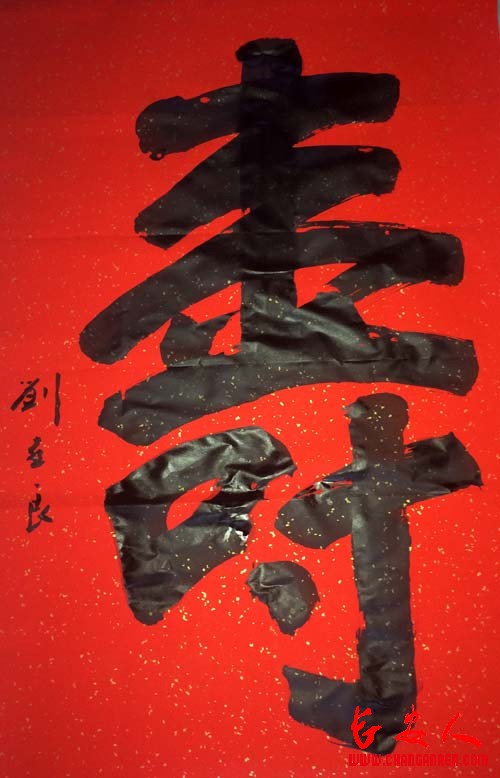 壽
劉 良
长安人
WWW.CHANGANREN.COM